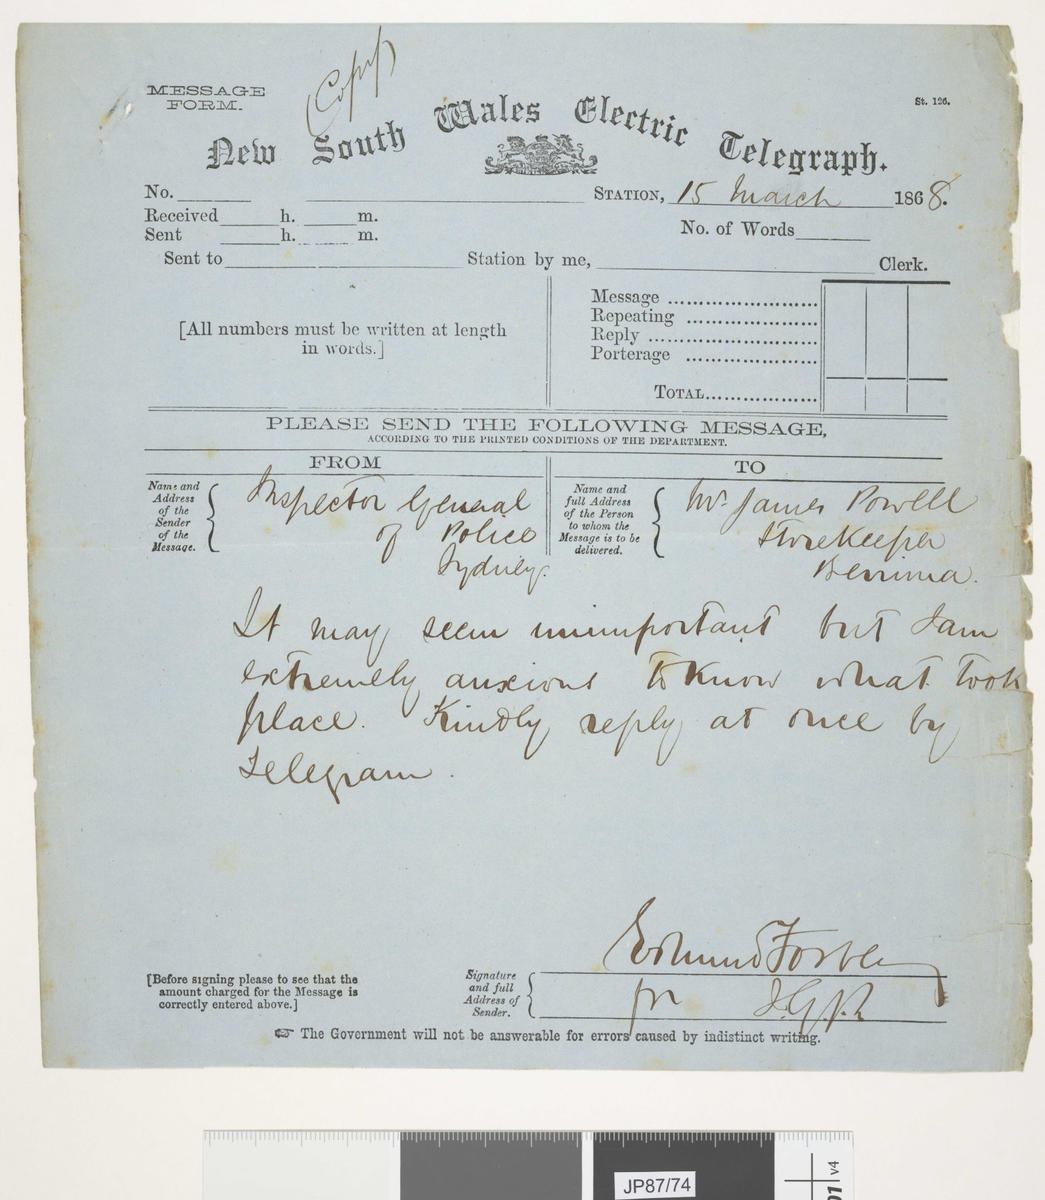 (Copy)
MESSAGE
FORM.
St. 126.
New South Wales Electric Telegraph.
No. STATION, 15 March 1868.
Received h. m.
Sent h. m. No. of Words
Sent to Station by me, Clerk.
[All numbers must be written at length
in words.]
Message
Repeating
Reply
Porterage
TOTAL
PLEASE SEND THE FOLLOWING MESSAGE,
ACCORDING TO THE PRINTED CONDITIONS OF THE DEPARTMENT.
FROM
Name and
Address
of the
Sender
of the
Message.
Inspector General
of Police
Sydney.
TO
Name and
full Address
of the Person
to whom the
Message is to be
delivered.
Mr. James Powell
Storekeeper
Berrima.
It may seem unimportant but I am
extremely anxious to know what took
place. Kindly reply at once by
Telegram.
[Before signing please to see that the
amount charged for the Message is
correctly entered above.]
Signature
and full
Address of
Sender.
Edmund Fosbery
for I.G.P.
☞ The Government will not be answerable for errors caused by indistinct writing.
JP87/74
01 v4